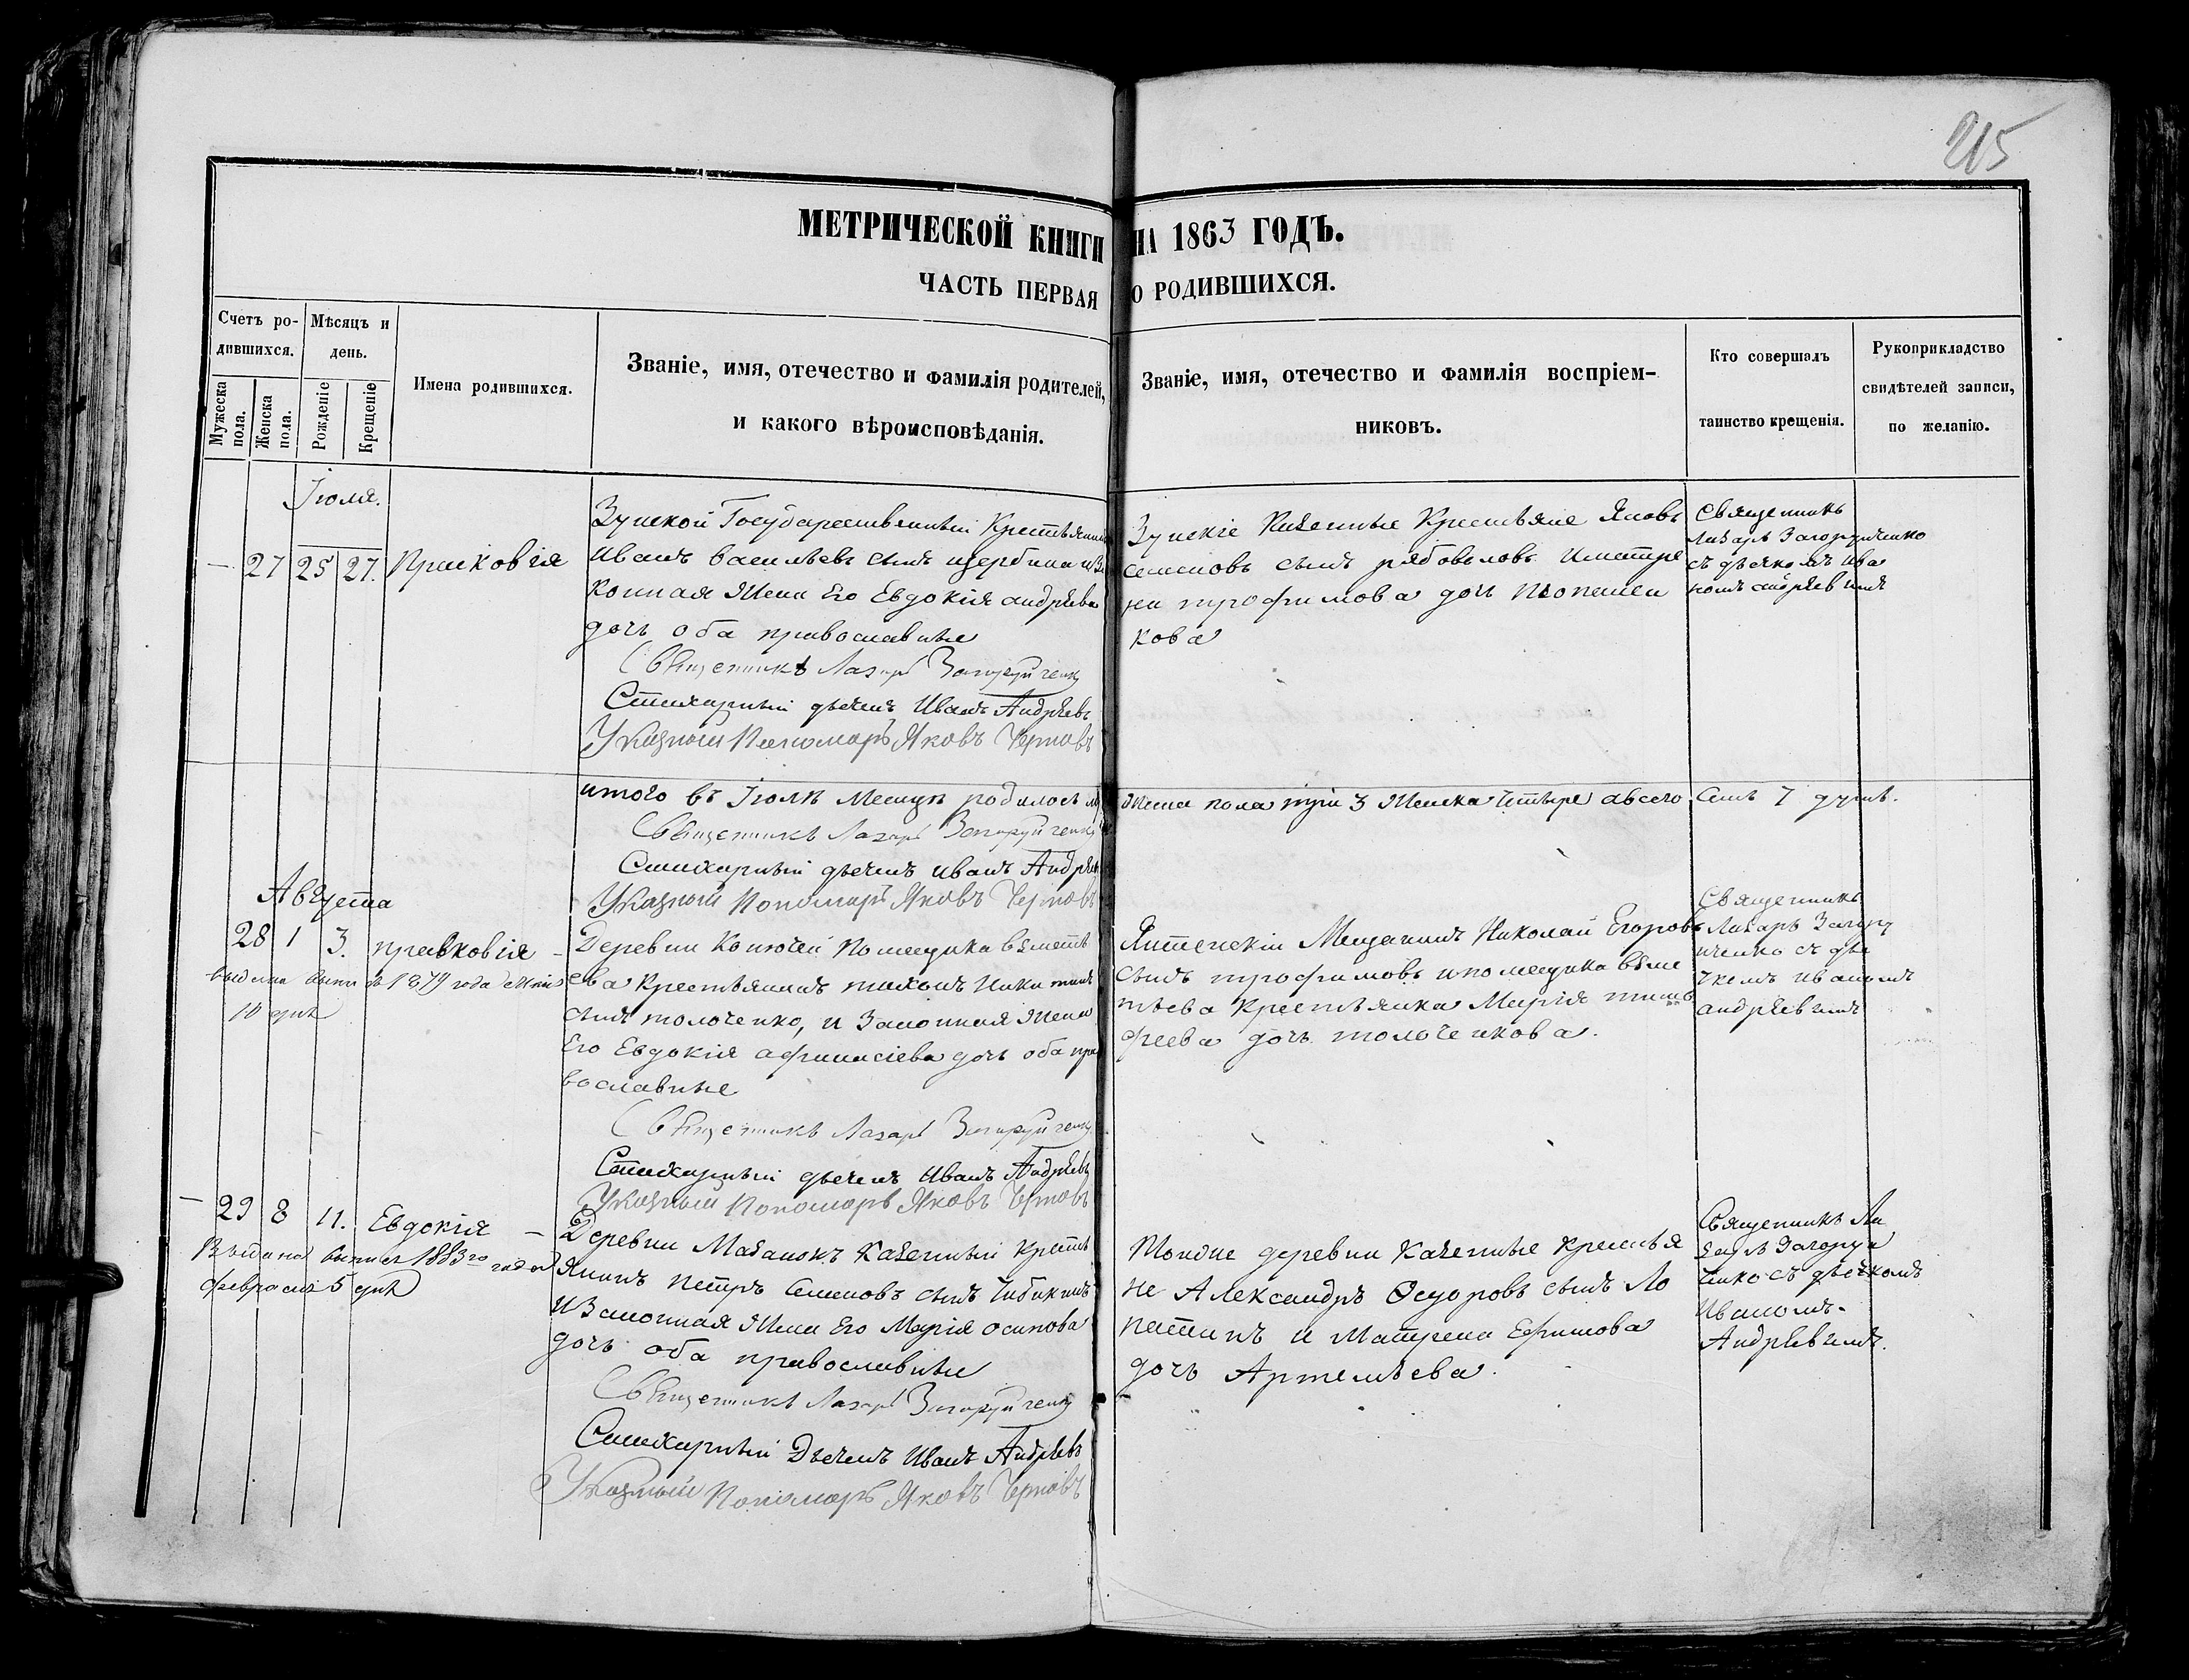 215
МЕТРИЧЕСКОЙ КНИГИ НА 1863 ГОДЪ.
ЧАСТЬ ПЕРВАЯ О РОДИВШИХСЯ.
Счетъ ро-
дившихся.
Мужеска пола.
Женска пола.
Мѣсяцъ и
день.
Рожденіе
Крещеніе
Имена родившихся.
Званіе, имя, отечество и фамилія родителей,
и какого вѣроисповѣданія.
Званіе, имя, отечество и фамилія воспріем-
никовъ.
Кто совершалъ
таинство крещенія.
Рукоприкладство
свидѣтелей записи,
по желанію.
Іюля.
— 27 25 27. Прасковія
Государственный Крестьянинъ
Иванъ Васильевъ сынъ щербина и За
конная Жена Его Евдокія андрѣева
дочь оба православные
Священникъ Лазарь
Стихарный дьячекъ Иванъ Андрѣевъ
Указный Пономарь Яковъ Черновъ
Казенные Крестьяне Яковъ
семеновъ сынъ рябоволовъ Иматре
на трофимова дочь
кова
Священникъ
Лазарь
съ дьячкомъ Ива
номъ андрѣевымъ
итого въ Іюлѣ Месяцѣ родилось
жеска пола три 3 Женска Четыре авсего Семъ 7 душъ.
Священникъ Лазарь
Стихарный дьячекъ иванъ Андрѣевъ
Указный Пономарь Яковъ Черновъ
Августа
28 1 3. прасковія —
выдана 1879 года
10 дня
Деревни помещика
ева Крестьянинъ тихонъ Никитинъ
сынъ толоченко, и Законная Жена
Его Евдокія афанасіева дочь оба пра
вославные
Священникъ Лазарь
Стихарный дьячекъ Иванъ Андрѣевъ
Указный Пономарь Яковъ Черновъ
Мещанинъ Николай Егоровъ
сынъ трофимовъ ипомещика
Крестьянка Марія тимо
феева дочь толоченкова.
Священникъ
Лазарь
съ дья
чкомъ иваномъ
андрѣевымъ
— 29 8 11. Евдокія —
Выдана 1883го года
февраля 5 дня
Деревни Казенный Кресть
янинъ Петръ Семеновъ сынъ
иЗаконная Жена Его Марія осипова
дочь оба православные
Священникъ Лазарь
Стихарный Дьячекъ Иванъ Андрѣевъ
Указный Пономарь Яковъ Черновъ
Тойже деревни Казенные крестья
не Александръ Ѳедоровъ сынъ Ло
патинъ и Матрена Ефимова
дочь Артемьева.
Священникъ Ла
зарь
съ дьячкомъ
Иваномъ
Андрѣевымъ.